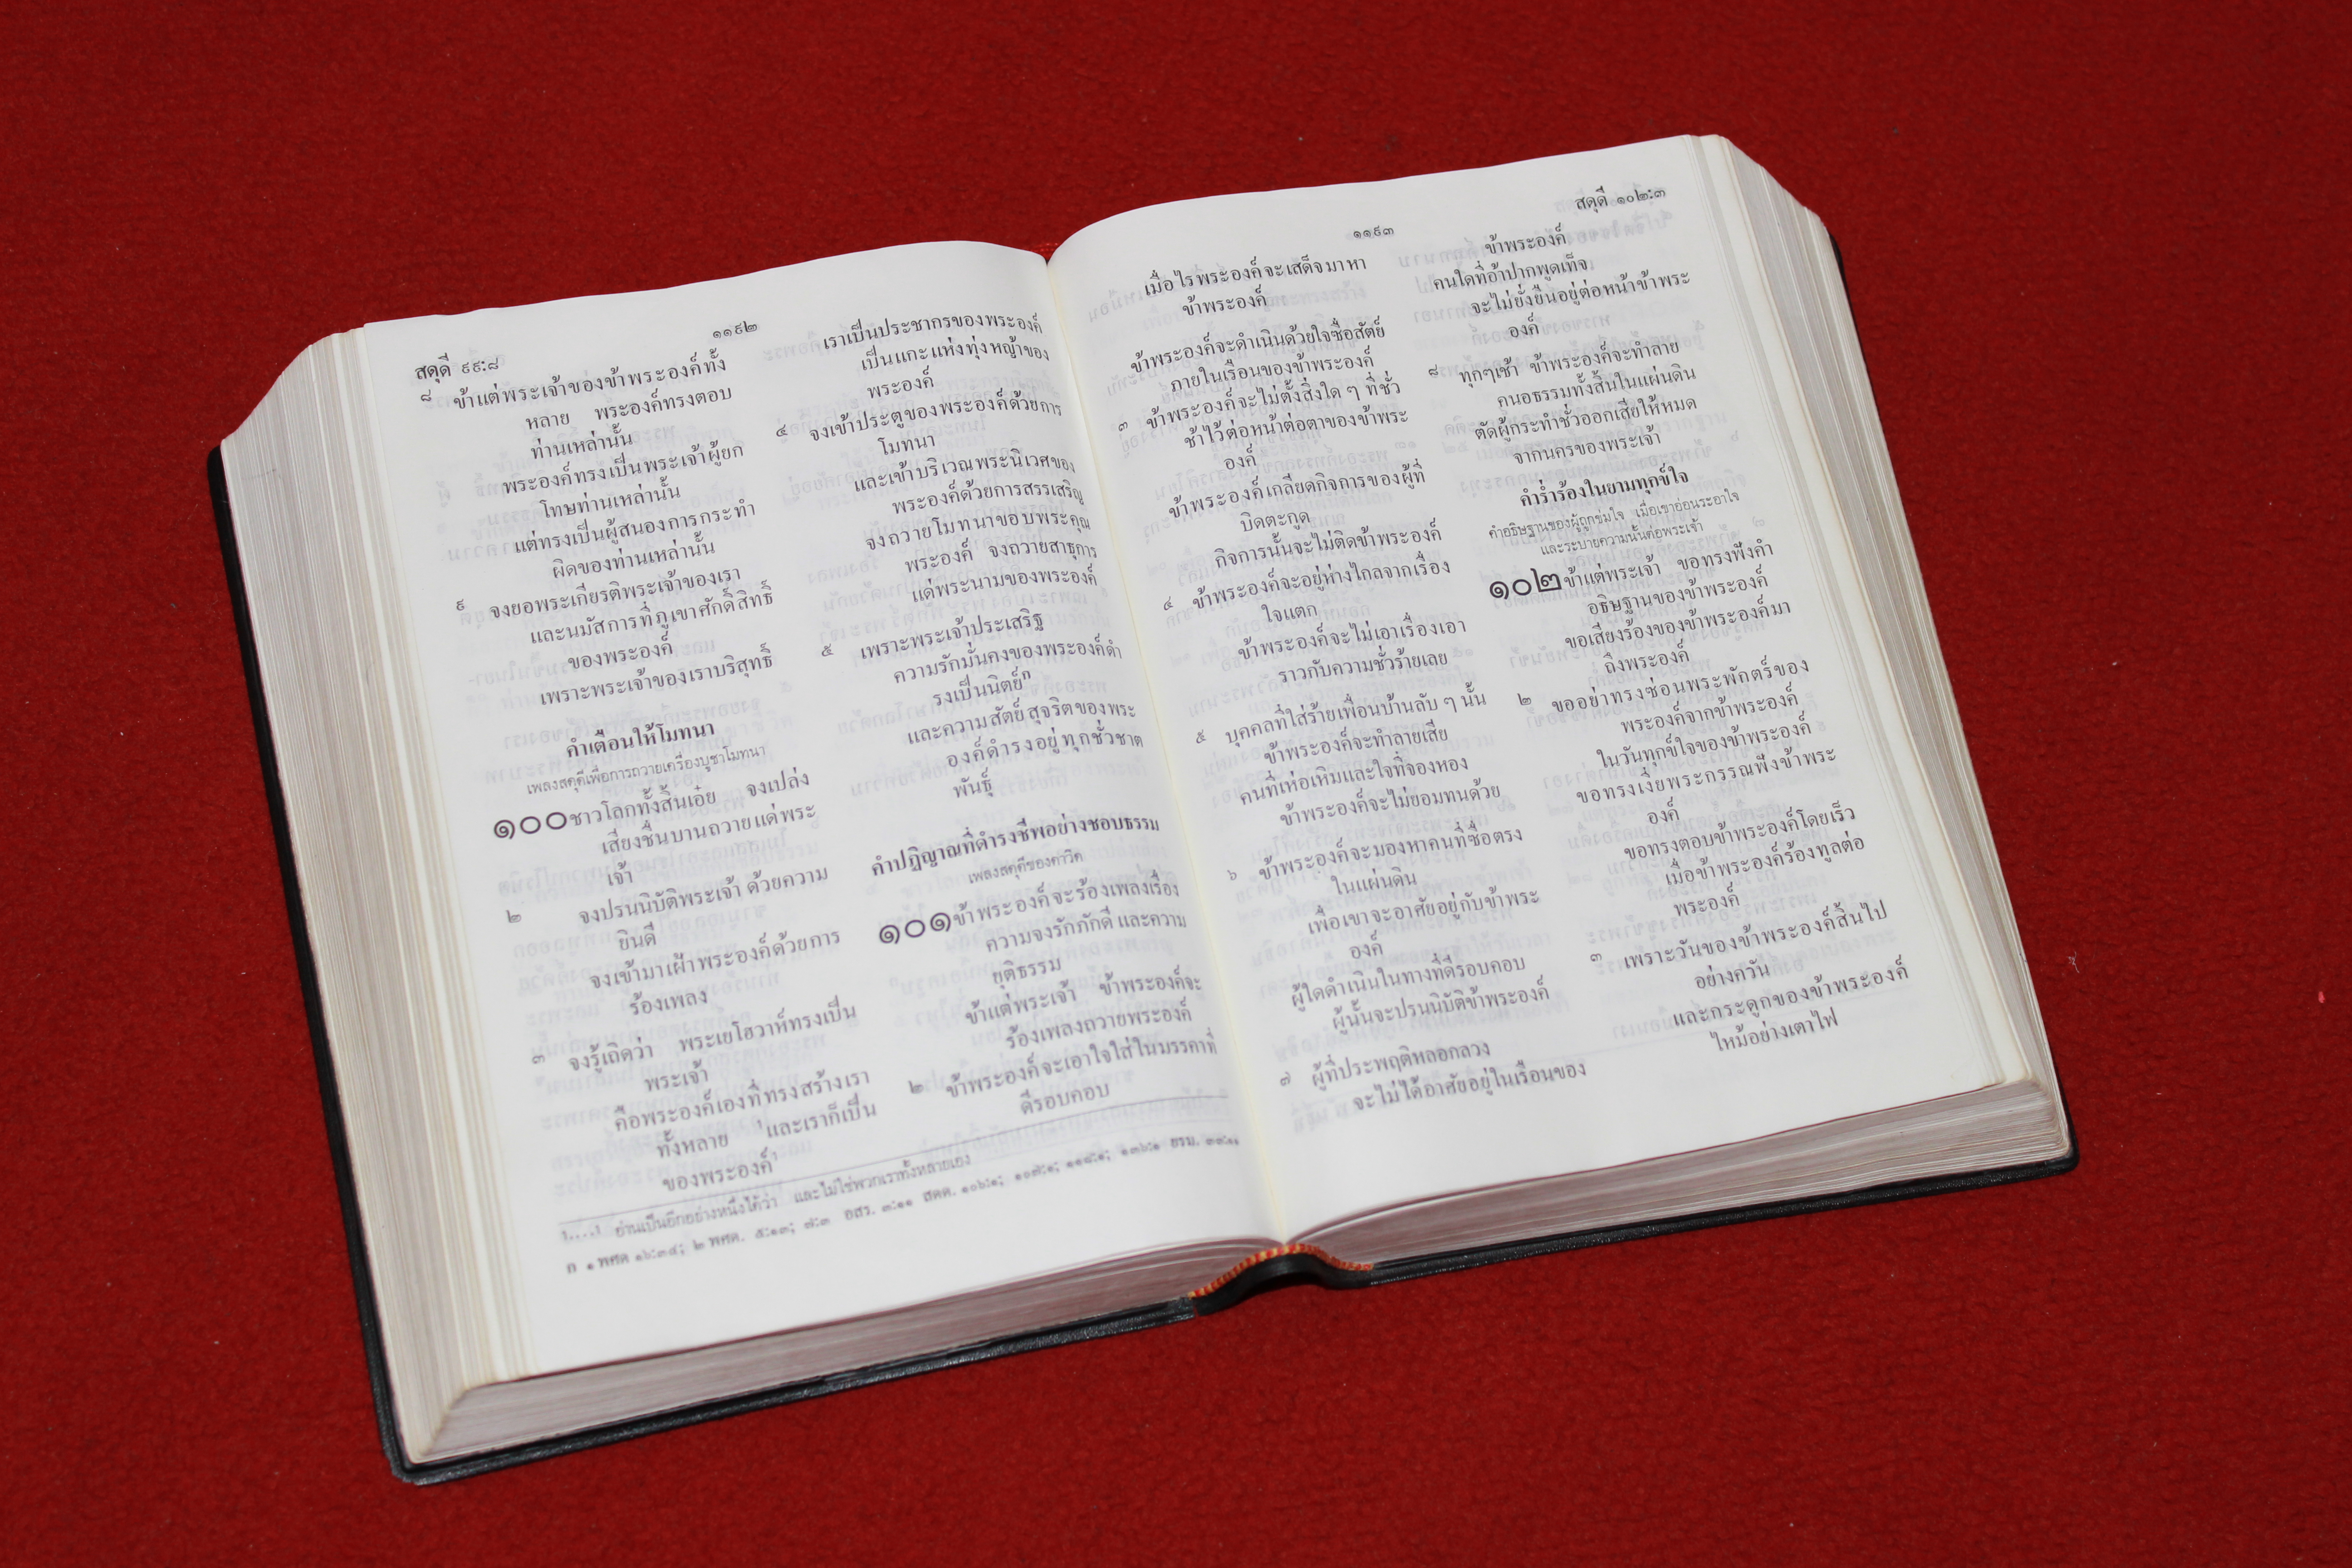 สดุดี ๙๙:๘
๑๑๙๒
๘ ข้าแต่พระเจ้าของข้าพระองค์ทั้ง
หลาย พระองค์ทรงตอบ
ท่านเหล่านั้น
พระองค์ทรงเป็นพระเจ้าผู้ยก
โทษท่านเหล่านั้น
แต่ทรงเป็นผู้สนองการกระทำ
ผิดของท่านเหล่านั้น
๙ จงยอพระเกียรติพระเจ้าของเรา
และนมัสการที่ภูเขาศักดิ์สิทธิ์
ของพระองค์
เพราะพระเจ้าของเราบริสุทธิ์
คำเตือนให้โมทนา
เพลงสดุดีเพื่อการถวายเครื่องบูชาโมทนา
๑๐๐ ชาวโลกทั้งสิ้นเอ๋ย จงเปล่ง
เสียงชื่นบานถวายแด่พระ
เจ้า
๒ จงปรนนิบัติพระเจ้า ด้วยความ
ยินดี
จงเข้ามาเฝ้าพระองค์ด้วยการ
ร้องเพลง
๓ จงรู้เถิดว่า พระเยโฮวาห์ทรงเป็น
พระเจ้า
คือพระองค์เองที่ทรงสร้างเรา
ทั้งหลาย ¹และเราก็เป็น
ของพระองค์¹
เราเป็นประชากรของพระองค์
เป็นแกะแห่งทุ่งหญ้าของ
พระองค์
๔ จงเข้าประตูของพระองค์ด้วยการ
โมทนา
และเข้าบริเวณพระนิเวศของ
พระองค์ด้วยการสรรเสริญ
จงถวายโมทนาขอบพระคุณ
พระองค์ จงถวายสาธุการ
แด่พระนามของพระองค์
๕ เพราะพระเจ้าประเสริฐ
ความรักมั่นคงของพระองค์ดำ
รงเป็นนิตย์ก
และความสัตย์สุจริตของพระ
องค์ดำรงอยู่ทุกชั่วชาต
พันธุ์
คำปฏิญาณที่ดำรงชีพอย่างชอบธรรม
เพลงสดุดีของดาวิด
๑๐๑ ข้าพระองค์จะร้องเพลงเรื่อง
ความจงรักภักดี และความ
ยุติธรรม
ข้าแต่พระเจ้า ข้าพระองค์จะ
ร้องเพลงถวายพระองค์
๒ ข้าพระองค์จะเอาใจใส่ในมรรคาที่
ดีรอบคอบ
¹....¹ อ่านเป็นอีกอย่างหนึ่งได้ว่า และไม่ใช่พวกเราทั้งหลายเอง
ก ๑ พศด ๑๖:๓๔; ๒ พศด. ๕:๑๓; ๗:๓ อสร. ๓:๑๑ สดด. ๑๐๖:๑; ๑๐๗:๑; ๑๑๘:๑; ๑๓๖:๑ ยรม. ๓๓:๑๑
๑๑๙๓
สดุดี ๑๐๒:๓
เมื่อไรพระองค์จะเสด็จมาหา
ข้าพระองค์
ข้าพระองค์จะดำเนินด้วยใจซื่อสัตย์
ภายในเรือนของข้าพระองค์
๓ ข้าพระองค์จะไม่ตั้งสิ่งใด ๆ ที่ชั่ว
ช้าไว้ต่อหน้าต่อตาของข้าพระ
องค์
ข้าพระองค์เกลียดกิจการของผู้ที่
บิดตะกูด
กิจการนั้นจะไม่ติดข้าพระองค์
๔ ข้าพระองค์จะอยู่ห่างไกลจากเรื่อง
ใจแตก
ข้าพระองค์จะไม่เอาเรื่องเอา
ราวกับความชั่วร้ายเลย
๕ บุคคลที่ใส่ร้ายเพื่อนบ้านลับ ๆ นั้น
ข้าพระองค์จะทำลายเสีย
คนที่เห่อเหิมและใจที่จองหอง
ข้าพระองค์จะไม่ยอมทนด้วย
๖ ข้าพระองค์จะมองหาคนที่ซื่อตรง
ในแผ่นดิน
เพื่อเขาจะอาศัยอยู่กับข้าพระ
องค์
ผู้ใดดำเนินในทางที่ดีรอบคอบ
ผู้นั้นจะปรนนิบัติข้าพระองค์
๗ ผู้ที่ประพฤติหลอกลวง
จะไม่ได้อาศัยอยู่ในเรือนของ
ข้าพระองค์
คนใดที่อ้าปากพูดเท็จ
จะไม่ยั่งยืนอยู่ต่อหน้าข้าพระ
องค์
๘ ทุกๆเช้า ข้าพระองค์จะทำลาย
คนอธรรมทั้งสิ้นในแผ่นดิน
ตัดผู้กระทำชั่วออกเสียให้หมด
จากนครของพระเจ้า
คำร่ำร้องในยามทุกข์ใจ
คำอธิษฐานของผู้ถูกข่มใจ เมื่อเขาอ่อนระอาใจ
และระบายความนั้นต่อพระเจ้า
๑๐๒ ข้าแต่พระเจ้า ขอทรงฟังคำ
อธิษฐานของข้าพระองค์
ขอเสียงร้องของข้าพระองค์มา
ถึงพระองค์
๒ ขออย่าทรงซ่อนพระพักตร์ของ
พระองค์จากข้าพระองค์
ในวันทุกข์ใจของข้าพระองค์
ขอทรงเงี่ยพระกรรณฟังข้าพระ
องค์
ขอทรงตอบข้าพระองค์โดยเร็ว
เมื่อข้าพระองค์ร้องทูลต่อ
พระองค์
๓ เพราะวันของข้าพระองค์สิ้นไป
อย่างควัน
และกระดูกของข้าพระองค์
ไหม้อย่างเตาไฟ